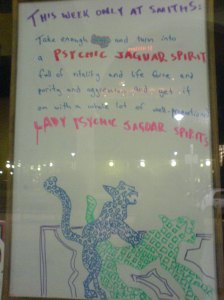 THIS WEEK ONLY AT SMITHS:
Take enough and turn into
a PSYCHIC JAGUAR SPIRIT
full of vitality and life force and
purity and aggression and get it
on with a whole lot of well-proportioned
LADY PSYCHIC JAGUAR SPIRITS